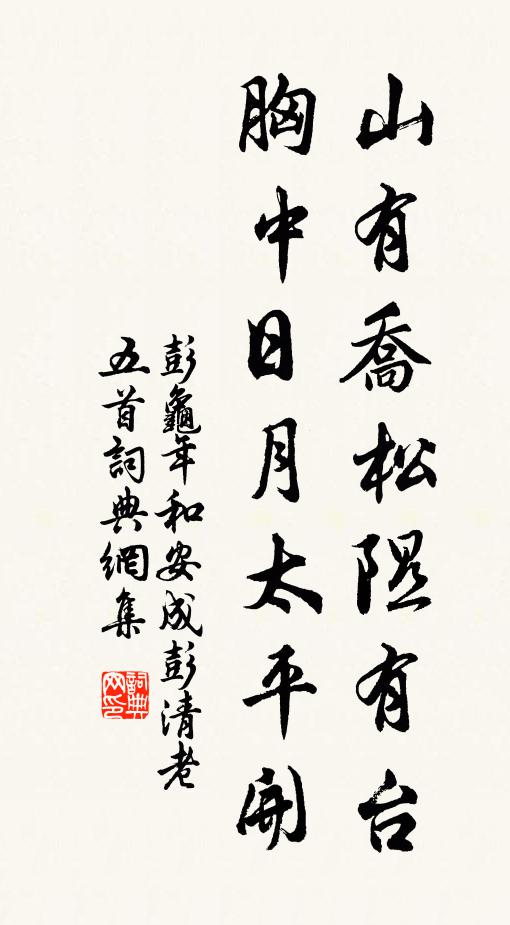 山有喬松隰有台
胸中日月太平開
彭龜年和安成彭清老
五首詞典網集
詞典網印